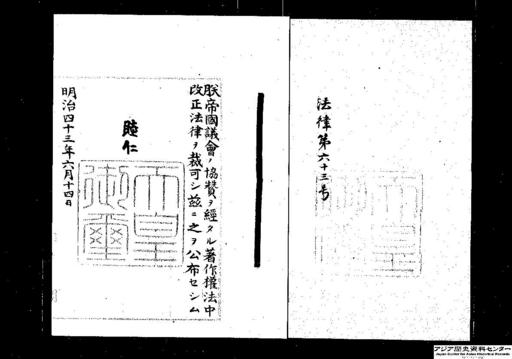 法律第六十三号
朕帝國議會ノ協贊ヲ經タル著作權法中
改正法律ヲ裁可シ茲ニ之ヲ公布セシム
睦仁
天皇
御璽
明治四十三年六月十四日
アジア歴史資料センター
Japan Center for Asian Historical Records